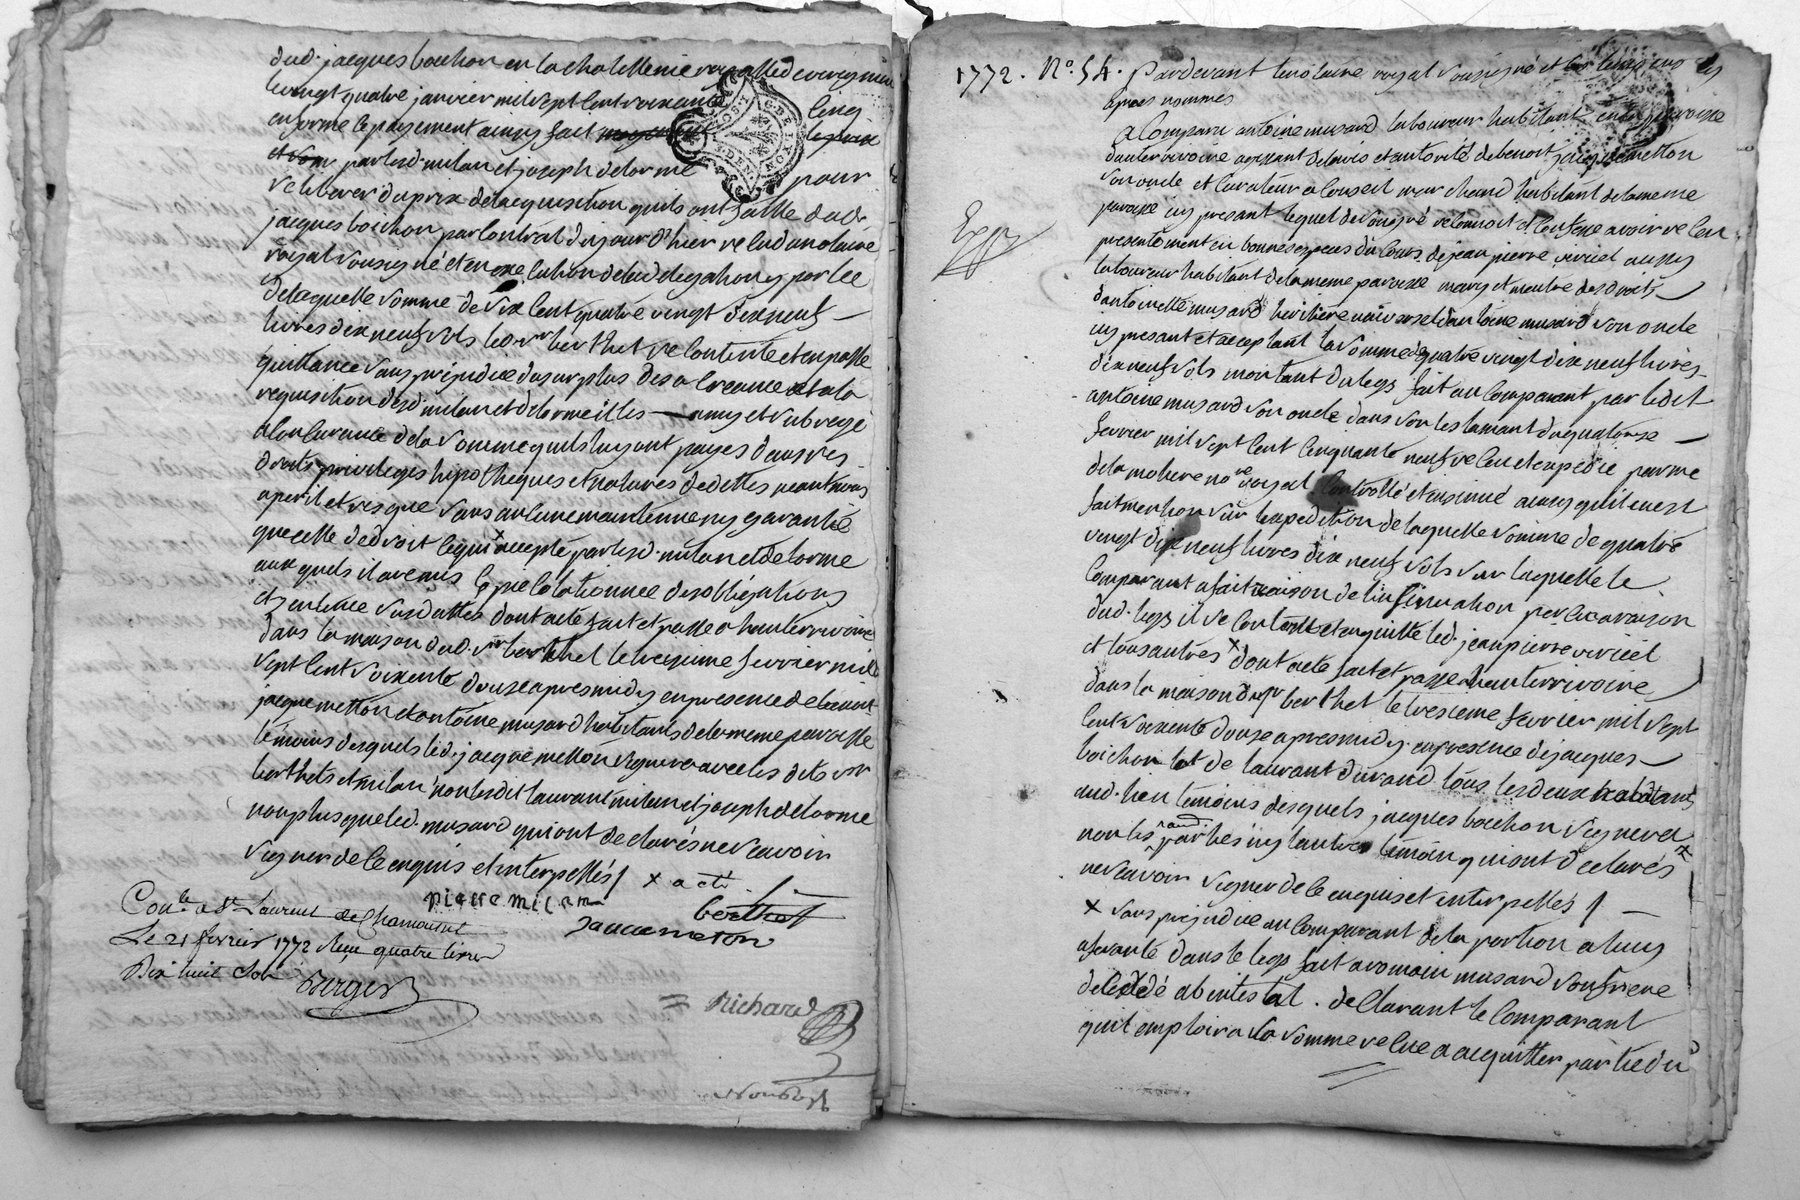 dud. jacques boichon en la chatellenie royalle
le vingt quatre janvier mil sept cent soixante cinq
en forme le payement ainsy fait
par lesd. milan et joseph delorme pour
se liberer du prix de lacquisition quils ont faitte dud.
jacques boichon par contrat du jour d'hier reçu du notaire
royal soussigné et en execution de la delegation y portée
de laquelle somme de six cent quatre vingt dixneuf
livres dix neuf sols led. sr berthet se contente et en passe
quittance sans prejudice du surplus de sa creance et a la
requisition desd. milan et delorme il les a mis et subrogé
a concurance de la somme quils luy ont payes dans ses
droits privileges hipotheques et natures de dettes neantmoins
a peril et risque sans aucune maintenue ny garantie
que celle de droit ce qui x accepté par lesd. milan et delorme
aux quels il a remis copie collationnée des obligations
et sentence susdattes dont acte fait et passé a hauterivoire
dans la maison dud. sr berthet le treizieme fevrier mil
sept cent soixante douze apres midy en presence de benoit
jacquemetton et antoine musard habitants de la meme paroisse
temoins desquels led. jacquemetton signera avec les dits srs
berthet et milan non lesdit laurant milan et joseph delorme
non plus que led. musard qui ont declarés ne scavoir
signer de ce enquis et interpellés / x a été
pierre milan
berthet
Jacquemeton
Conle a St Laurent de Chamousset
Le 21 fevrier 1772 Reçu quatre livres
Dix huit sols
Berger
Richard
1772. No. 54. Pardevant le notaire royal soussigné et les temoins cy
apres nommés
a comparu antoine musard laboureur habitant en la paroisse
d'auterivoire agissant de lavis et autorité de benoit jacquemetton
son oncle et curateur a conseil marchand habitant de la meme
paroisse icy present lequel de son gré reconnoit et confesse avoir reçu
presentement en bonnes especes du cours de jean pierre viricel aussy
laboureur habitant de la meme paroisse mary et maitre des droits
d'antoinette musard heritiere universel d'antoine musard son oncle
icy present et acceptant la somme de quatre vingt dix neuf livres
dix neuf sols montant du legs fait au comparant par ledit
antoine musard son oncle dans son testamant du quatorze
fevrier mil sept cent cinquante neuf reçu et expedié par me
delamoliere nore royal controllé et insinué ainsy quil en est
fait mention sur lexpedition de laquelle somme de quatre
vingt dix neuf livres dix neuf sols sur laquelle le
comparant a fait raison de linsinuation par lui a raison
dud. legs il se contente et en quitte led. jean pierre viricel
et tous autres x dont acte fait et passé a hauterrivoire
dans la maison du sr berthet le treisieme fevrier mil sept
cent soixante douze apres midy en presence de jacques
boichon et de laurant durand tous les deux habitants
aud. lieu temoins desquels jacques boichon signera
non les parties ny lautre temoin qui ont declarés
ne scavoir signer de ce enquis et interpellés /
x sans prejudice au comparant de la portion a luy
aferante dans le legs fait a romain musard son frere
decedé abintestat. declarant le comparant
quil emploira la somme reçue a acquitter partie du